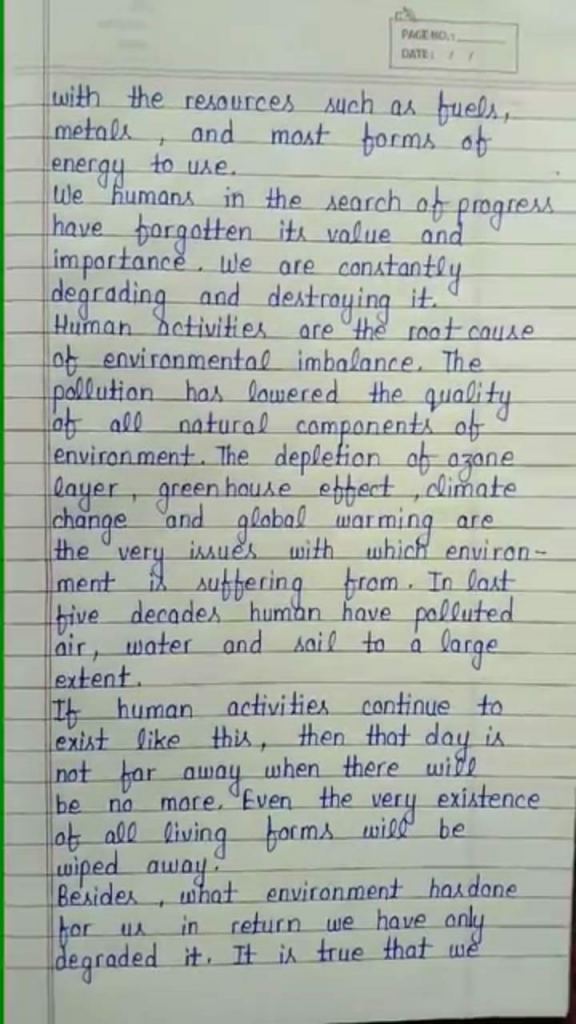 PAGE NO.:
DATE: / /
with the resources such as fuels,
metals, and most forms of
energy to use.
We humans in the search of progress
have forgotten its value and
importance. We are constantly
degrading and destroying it.
Human activities are the root cause
of environmental imbalance. The
pollution has lowered the quality
of all natural components of
environment. The depletion of ozone
layer, greenhouse effect, climate
change and global warming are
the very issues with which environ-
ment is suffering from. In last
five decades human have polluted
air, water and soil to a large
extent.
If human activities continue to
exist like this, then that day is
not far away when there will
be no more. Even the very existence
of all living forms will be
wiped away.
Besides, what environment has done
for us in return we have only
degraded it. It is true that we